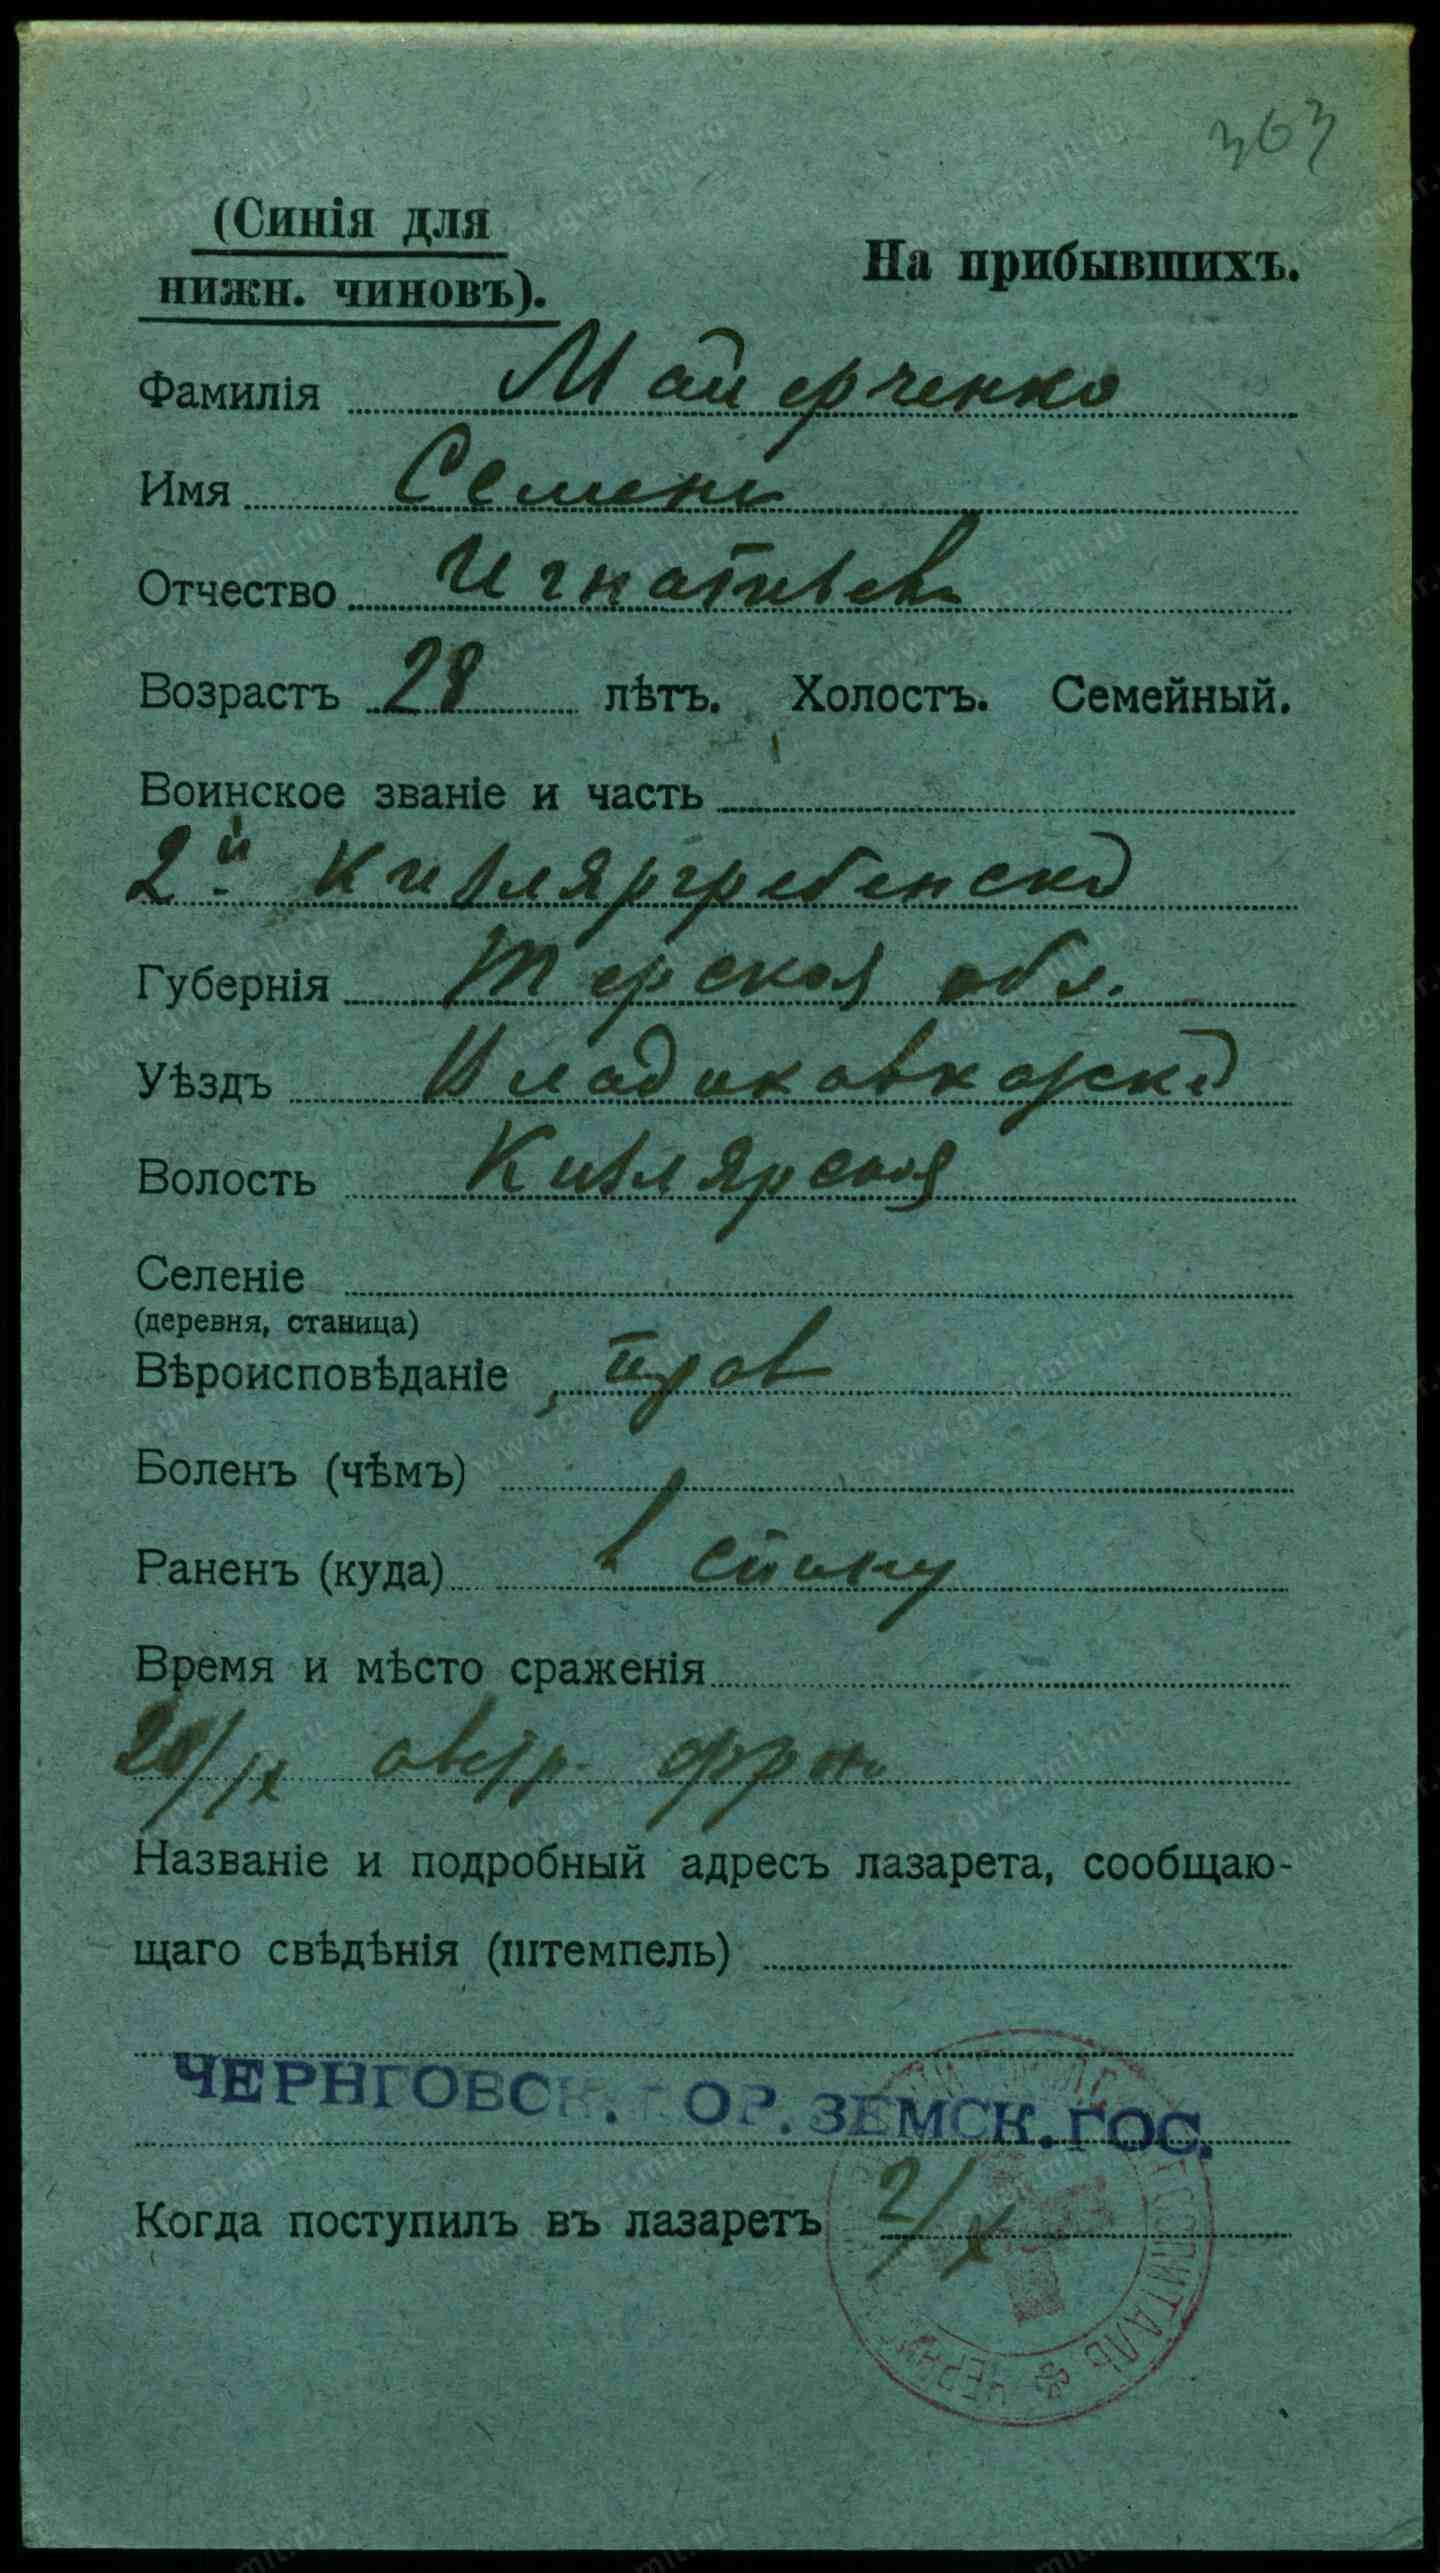 363
(Синія для
нижн. чиновъ).
На прибывшихъ.
Фамилія Майерченко
Имя Семенъ
Отчество Игнатьевъ
Возрастъ 28 лѣтъ. Холостъ. Семейный.
Воинское званіе и часть
2й Кизляргребенской
Губернія Терская обл.
Уѣздъ Владикавказской
Волость Кизлярская
Селеніе
(деревня, станица)
Вѣроисповѣданіе прав
Боленъ (чѣмъ)
Раненъ (куда) в спину
Время и мѣсто сраженія
20/IX австр. фрон
Названіе и подробный адресъ лазарета, сообщаю-
щаго свѣдѣнія (штемпель)
ЧЕРНГОВСК. ГОР. ЗЕМСК. ГОС.
Когда поступилъ въ лазаретъ 2/X